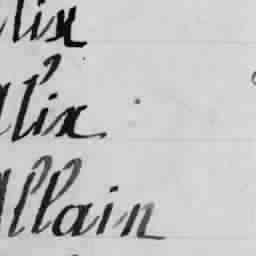 lix
Alix
Allain